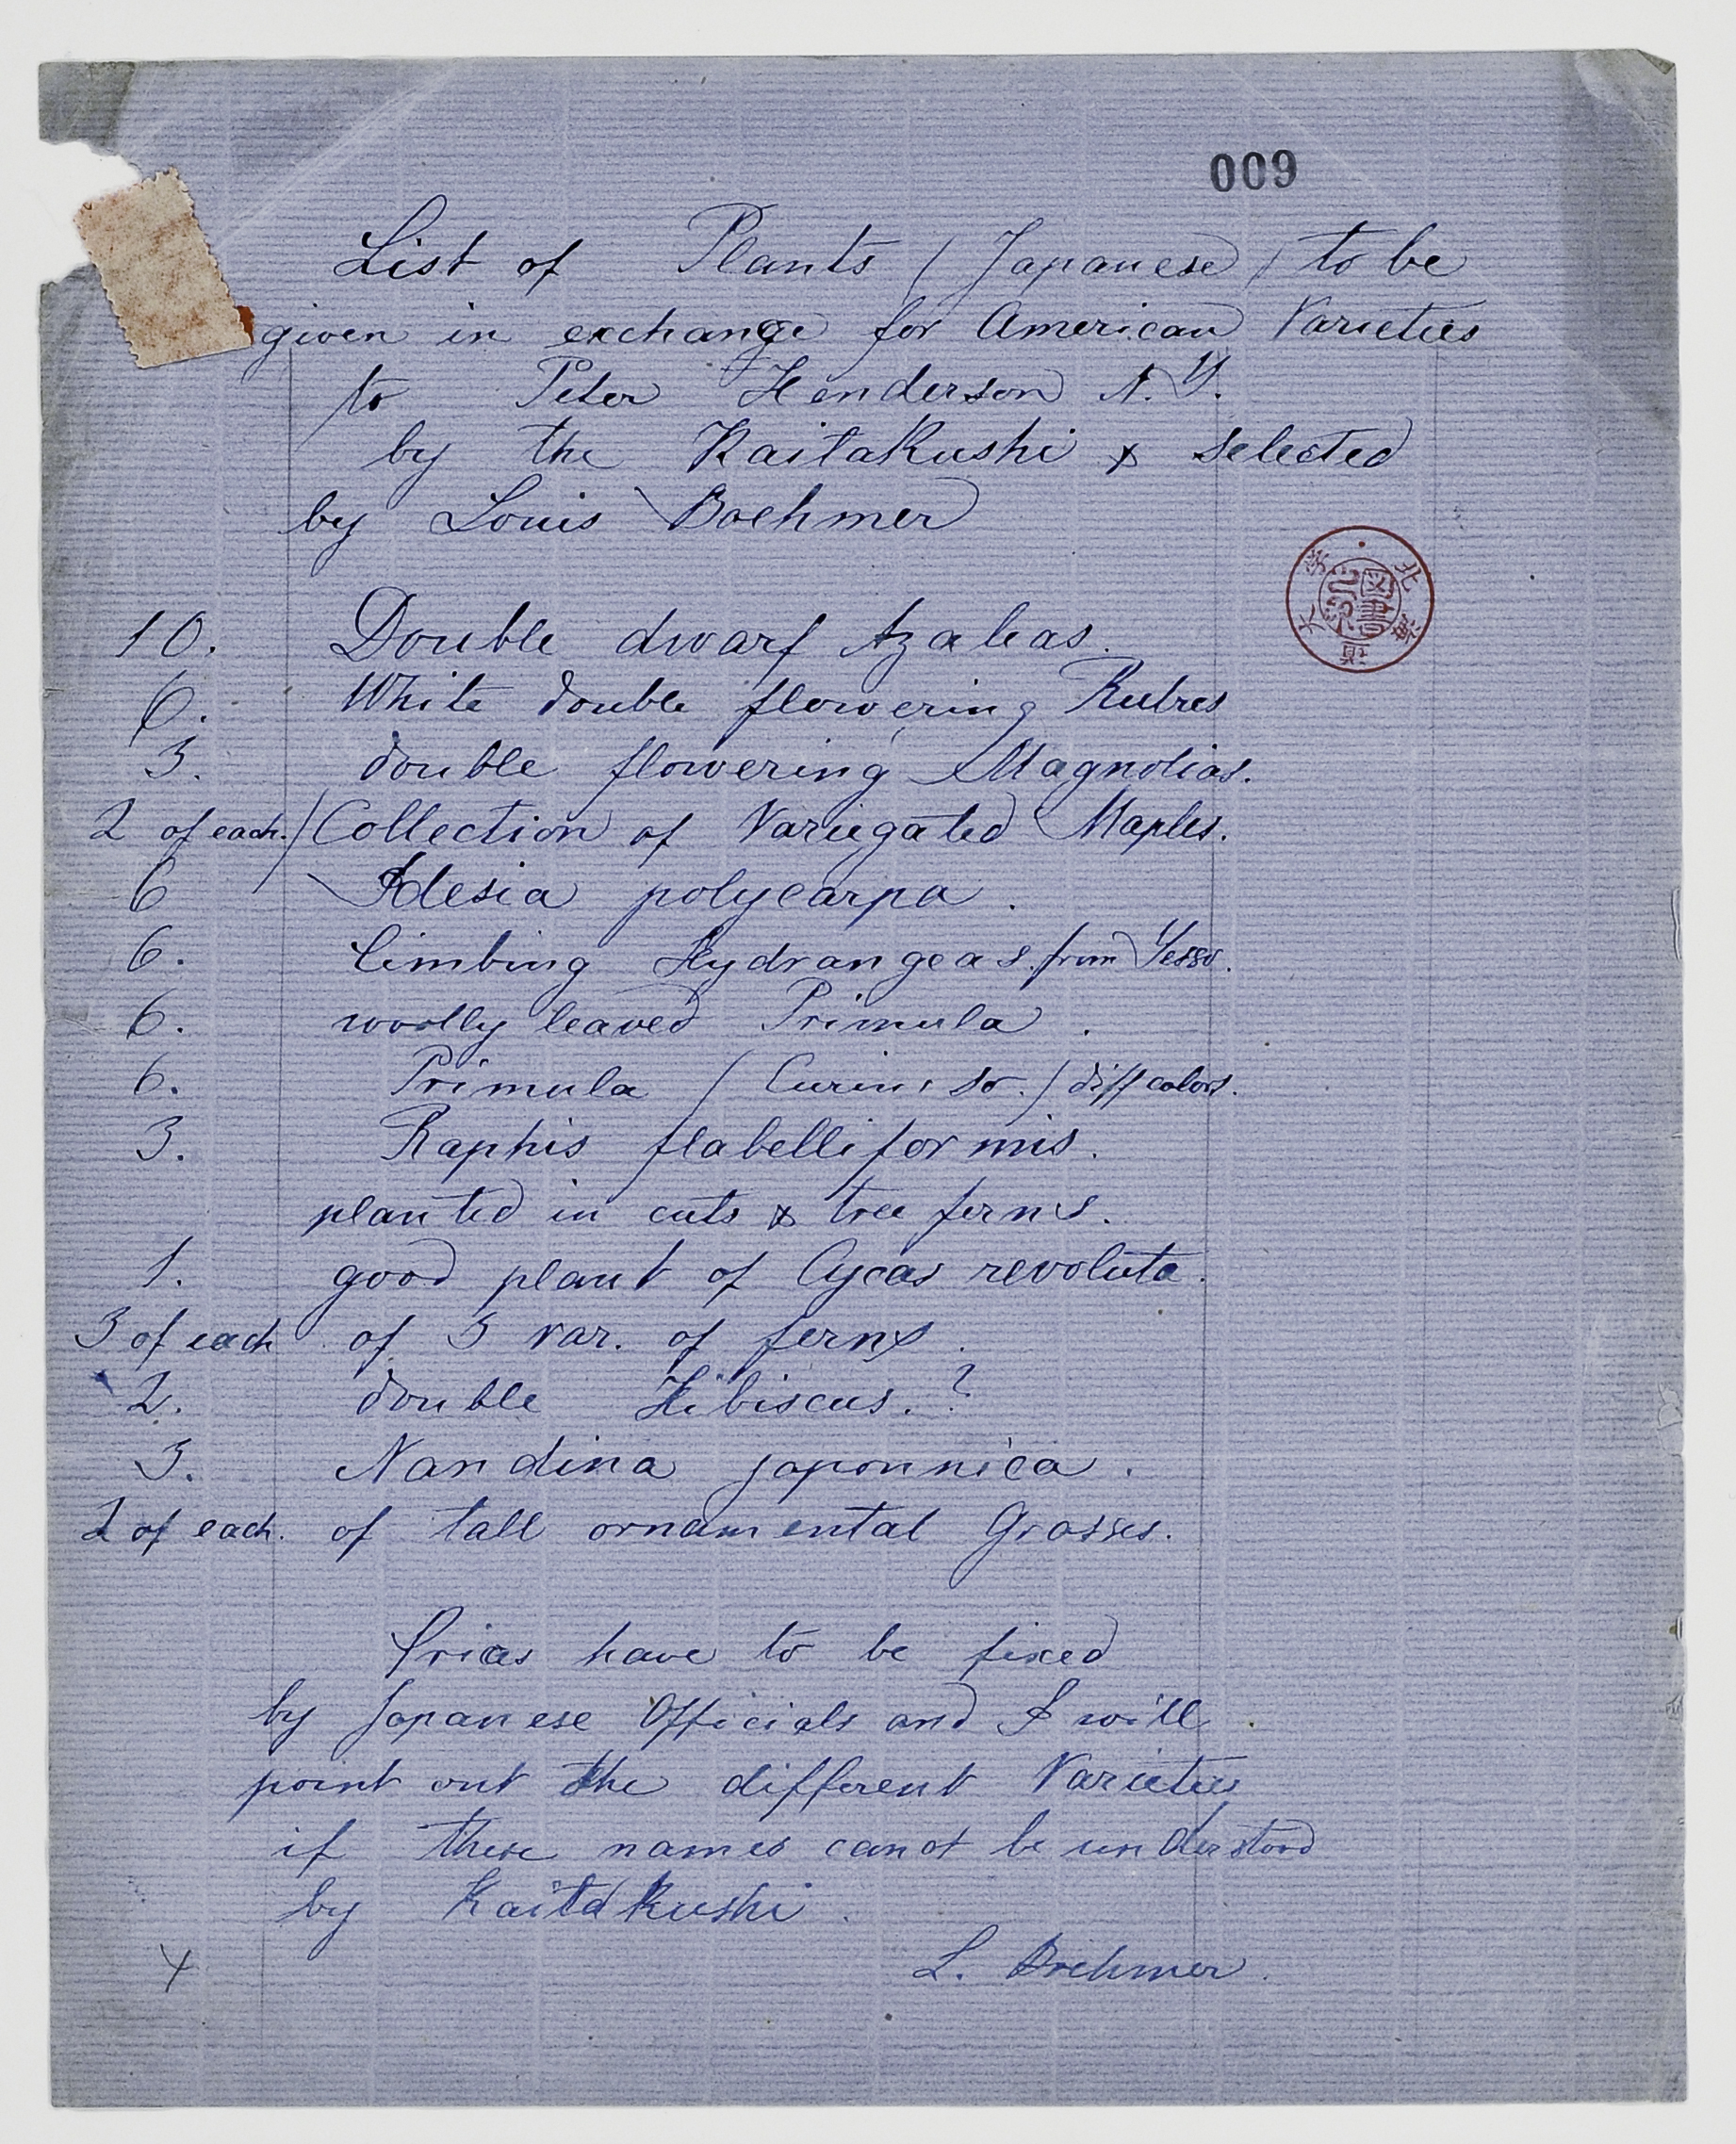 009
List of Plants (Japanese) to be
given in exchange for American Varieties
to Peter Henderson N.Y.
by the Kaitakushi & selected
by Louis Boehmer
10. Double dwarf Azaleas.
6. White double flowering Rubres
3. double flowering Magnolias.
2 of each. / Collection of Variegated Maples.
6 Idesia polycarpa.
6. Climbing Hydrangeas from Yesso.
6. woolly leaved Primula.
6. Primula ( so.) diff colors.
3. Raphis flabelliformis.
planted in cuts & tree ferns.
1. good plant of Cycas revoluta.
3 of each of 5 var. of ferns.
2. double Hibiscus. ?
3. Nandina japonnica.
2 of each. of tall ornamental Grasses.
Prices have to be fixed
by Japanese Officials and I will
point out the different Varieties
if these names canot be understood
by Kaitakushi.
L. Boehmer.
北海道大学
図書